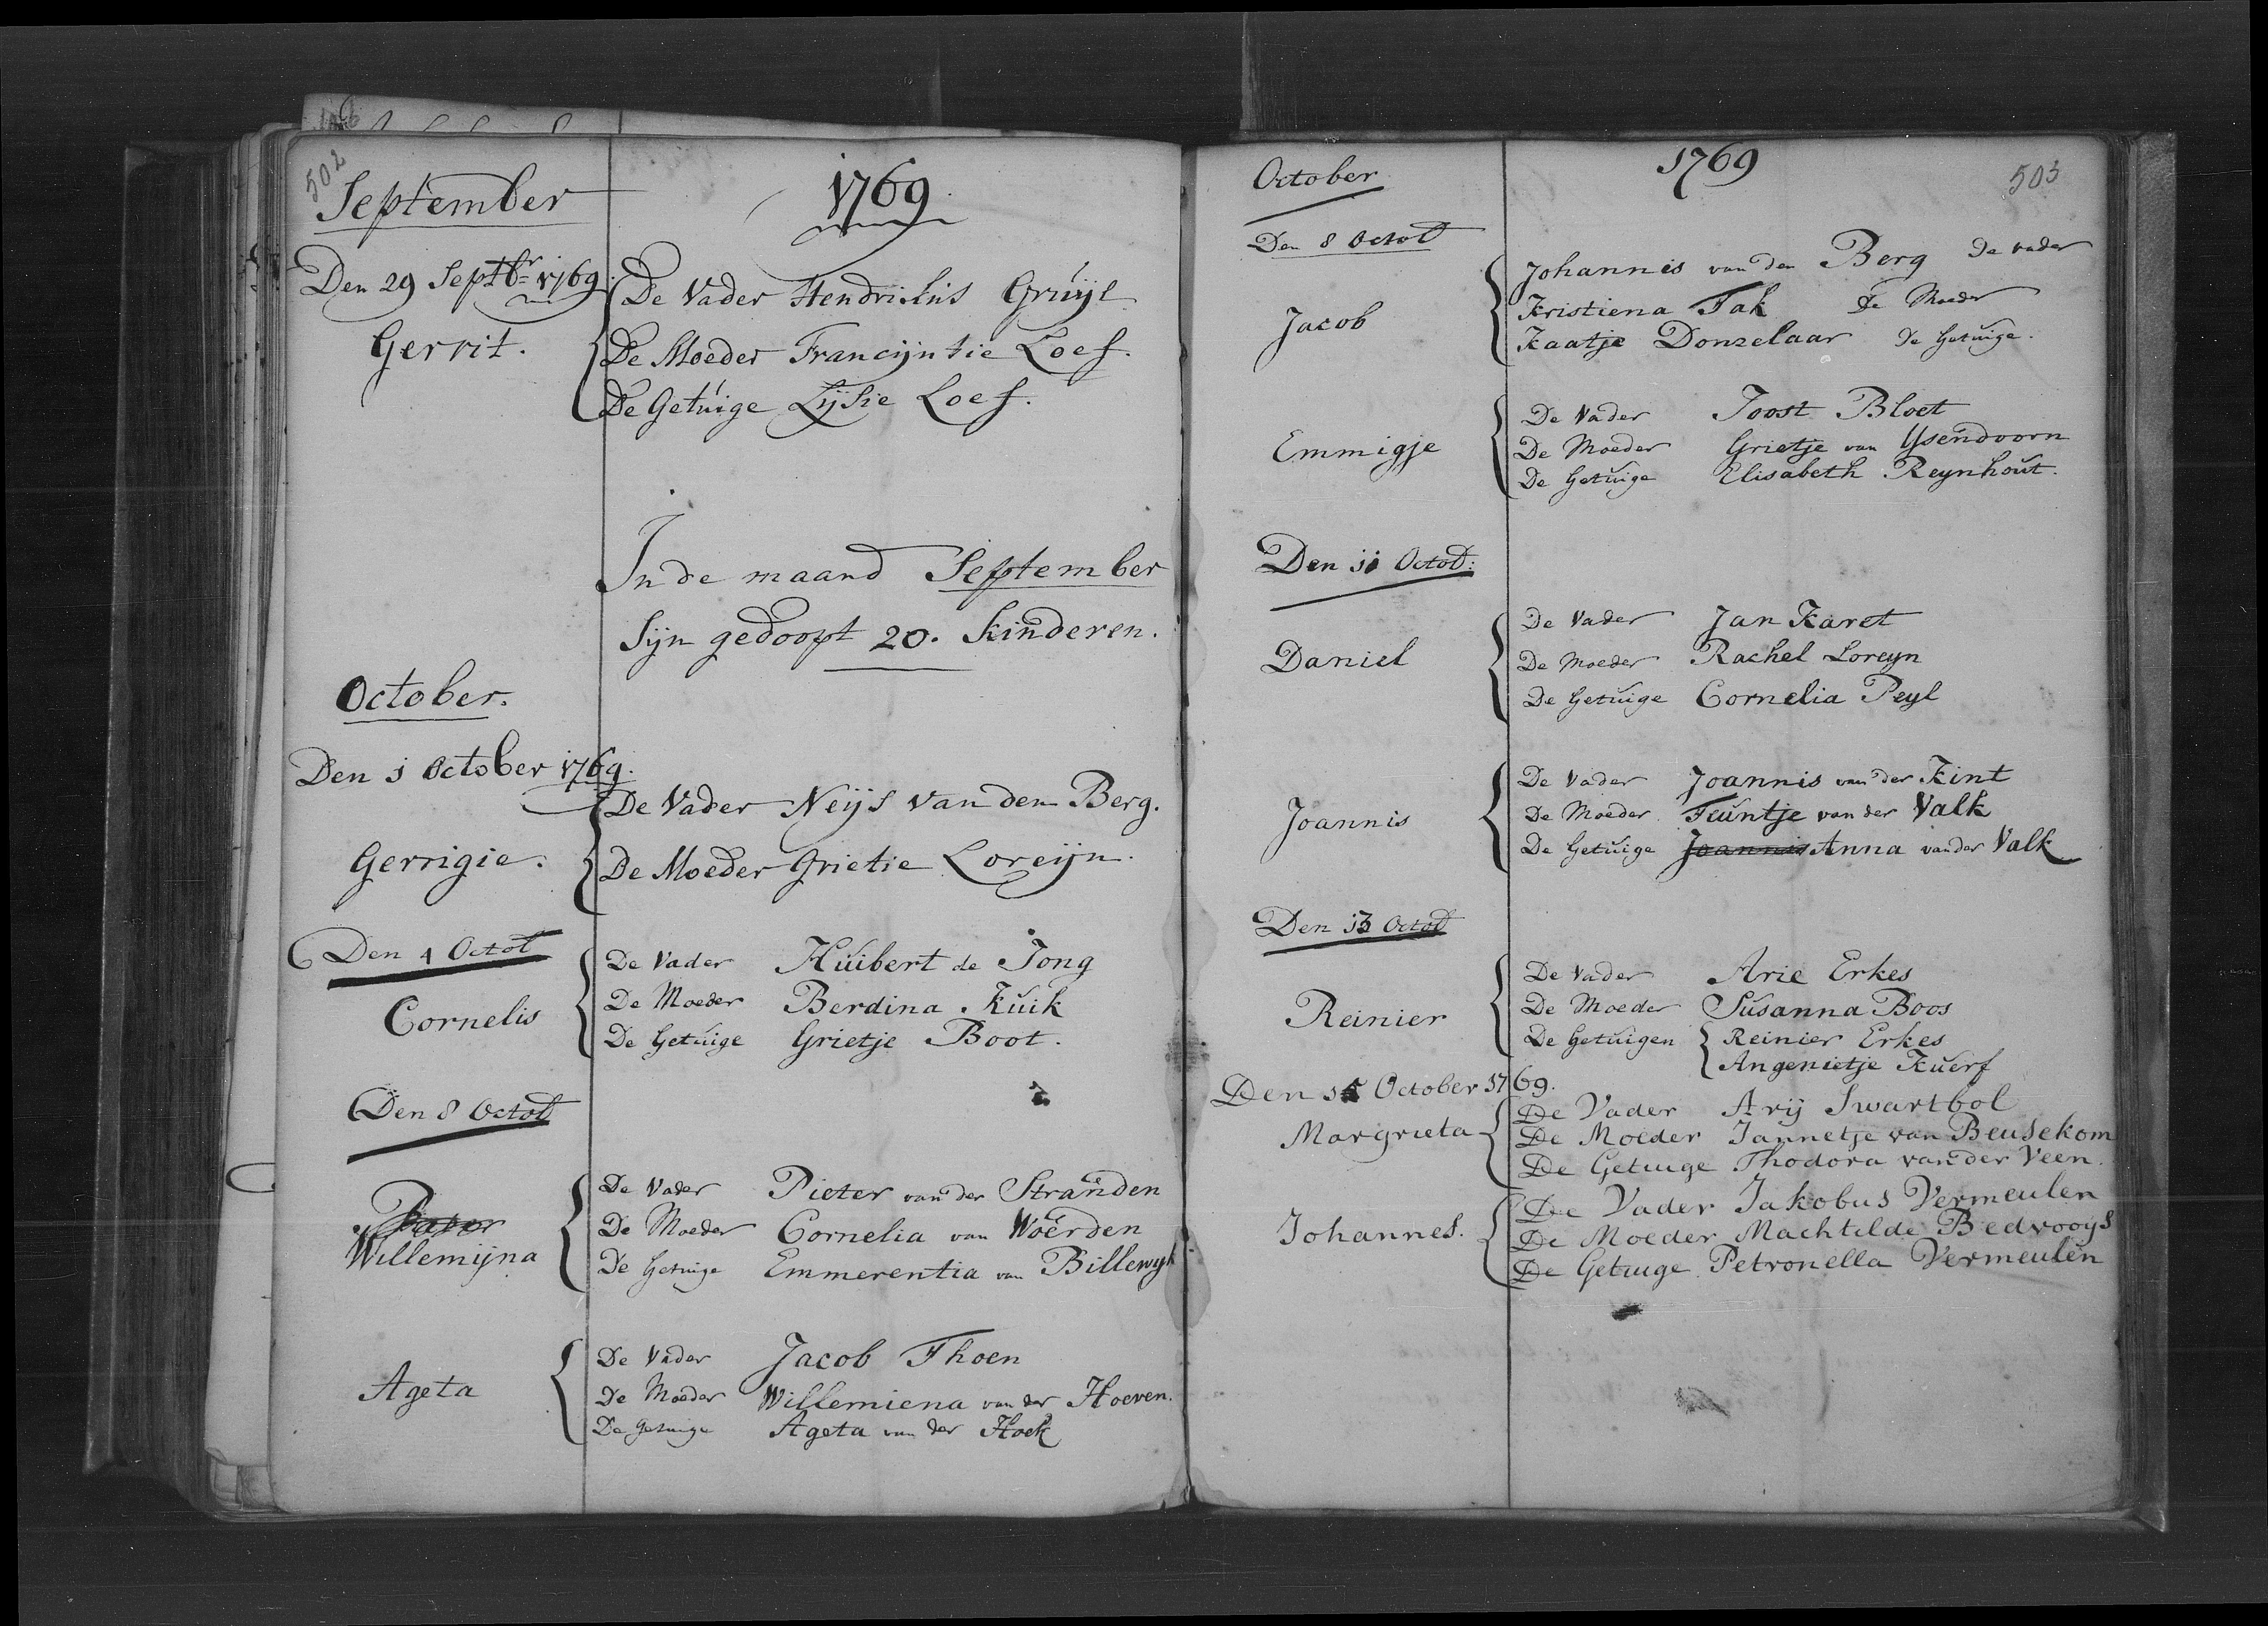 502
September
1769
Den 29 Septbr 1769
Gerrit.
De Vader Hendrickus Gruijt
De Moeder Francijntie Loef.
De Getuige Lijsie Loef.
In de maand September
Sijn gedoopt 20. kinderen.
October.
Den 1 October 1769.
Gerrigie.
De Vader Neijs van den Berg.
De Moeder Grietie Loreijn.
Den 4 Octob
Cornelis
De Vader Huibert de Jong
De Moeder Berdina Kuik
De Getuige Grietje Boot.
Den 8 Octob
Willemijna
De Vader Pieter van der Stranden
De Moeder Cornelia van Woerden
De Getuige Emmerentia van Billewyk
Ageta
De Vader Jacob Thoen
De Moeder Willemiena van der Hoeven.
De Getuige Ageta van der Hoek
October
1769
503
Den 8 Octob
Jacob
Johannis van den Berg de vader
Kristiena Tak de Moeder
Kaatje Donzelaar de Getuige.
Emmigje
De Vader Joost Bloet
De Moeder Grietje van Ysendoorn
De Getuige Elisabeth Reynhout.
Den 11 Octob:
Daniel
De Vader Jan Karet
De Moeder Rachel Loreyn
De Getuige Cornelia Peyl
Joannis
De Vader Joannis van der Kint
De Moeder Teuntje van der Valk
De Getuige Joannis Anna van der Valk
Den 13 Octob
Reinier
De Vader Arie Erkes
De Moeder Susanna Boos
De Getuigen Reinier Erkes
Angenietje Kuerf
Den 15 October 1769.
Margrieta
De Vader Arij Swartbol
De Moeder Jannetje van Beusekom
De Getuige Thodora van der Veen.
Johannes.
De Vader Jakobus Vermeulen
De Moeder Machtilde Bedrooys
De Getuige Petronella Vermeulen